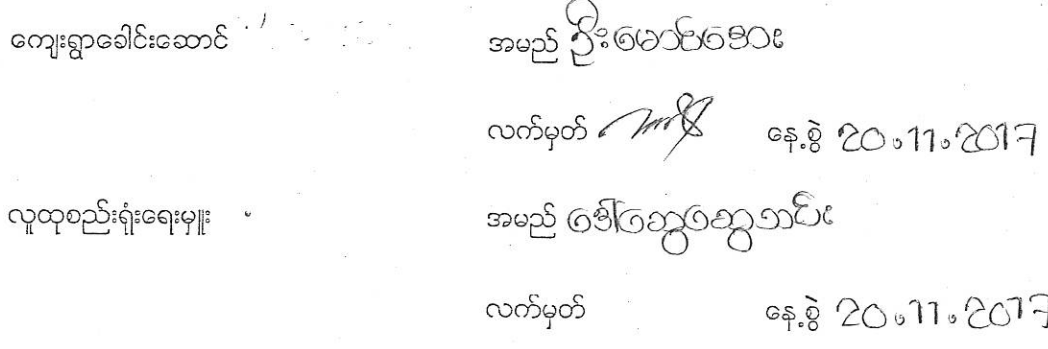 ကျေးရွာခေါင်းဆောင် အမည် ဦးမောင်ဒေး
လက်မှတ် နေ့စွဲ 20.11.2017
လူထုစည်းရုံးရေးမှူး အမည် ဒေါ်ထွေထွေသင်း
လက်မှတ် နေ့စွဲ 20.11.2017